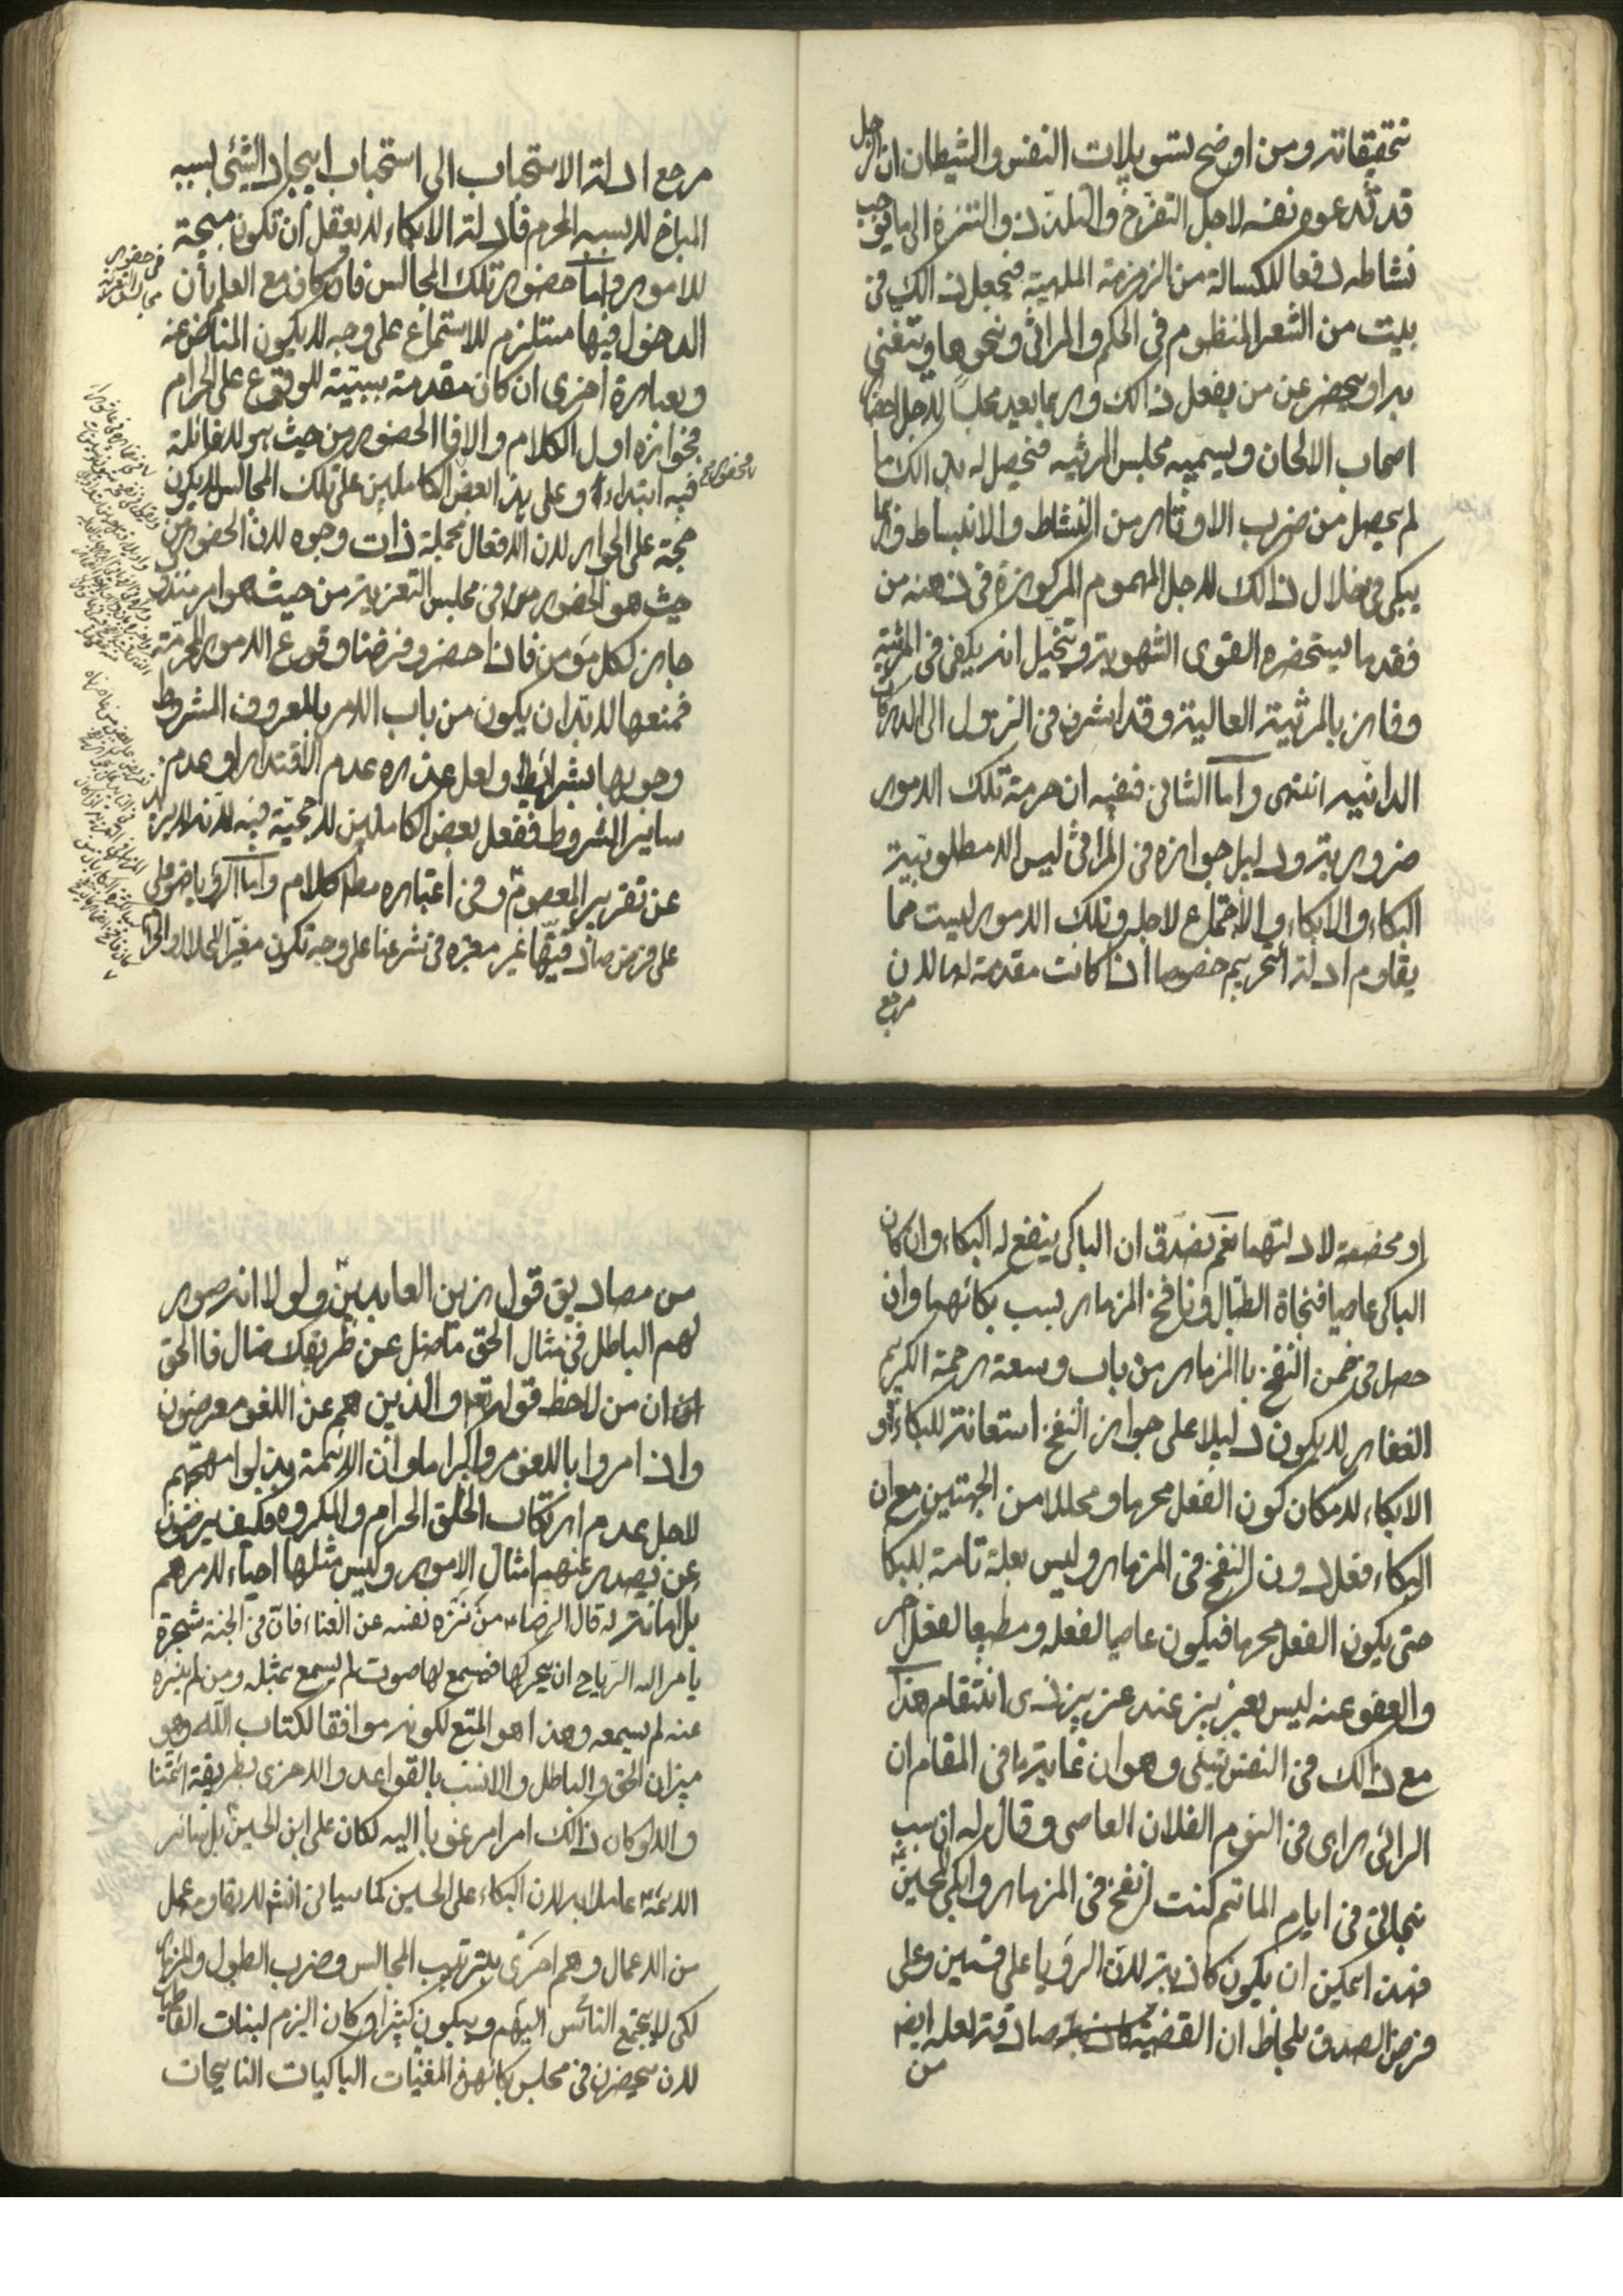 تحقيقاته ومن اوضح تسويلات النفس والشيطان ان الرجل
قد تدعوه نفسه لاجل التفرج والتلذذ والتنزه الى ما يوجب
نشاطه دفعا للكسالة من الزمزمة الملهية فيجعل ذالك في
بيت من الشعر المنظوم في الحكم والمراثي ونحوها ويتغنى
به او يحضر عن من يفعل ذالك وربما يعيد مجلسا لاجل احضار
اصحاب الالحان ويسميه مجلس المرثيه فيحصل له بذالك ما
لم يحصل من ضرب الاوتار من النشاط والانبساط وربما
يبكى في خلال ذالك لاجل الهموم المركوزة في ذهنه من
فقد ما يستحضره القوى الشهوية ويتخيل انه بكى في المرثية
وفاز بالمرثية العالية وقد اشرف في النزول الى الدركات
الدانيه انتهى واما الثاني ففيه ان حرمة تلك الامور
ضرورية ودليل جوازه في المراثي ليس الا مطلوبية
البكاء والابكاء والاجتماع لاجله وتلك الامور ليست مما
يقاوم ادلة التحريم خصوصا اذا كانت مقدمة لها لان
مرجع
مرجع ادلة الاستحباب الى استحباب ايجاد الشئى بسببه
المباح لا بسببه المحرم فادلة الابكاء لا يعقل ان تكون مبيحة
للامور واما حضور تلك المجالس فان كان مع العلم بأن
الدخول فيها مستلزم للاستماع على وجه لا يكون المناص عنه
وبعبارة اخرى ان كان مقدمة سببية للوقوع على الحرام
فجوازه اول الكلام والا فالحضور من حيث هو لا غائلة
فيه ابتداء وعلى هذا فحضور بعض الكاملين على تلك المجالس لا يكون
حجة على الجواز لان الافعال مجملة ذات وجوه لان الحضور من
حيث هو الحضور في مجلس التعزية من حيث هو امر مندوب
جايز لكل مؤمن فاذا حضر وفرضنا وقوع الامور المحرمة
فمنعها لابد ان يكون من باب الامر بالمعروف المشروط
وجوبها بشرائط ولعل عذره عدم الاقتدار او عدم
ساير الشروط ففعل بعض الكاملين لا حجية فيه لانه لا يزيد
عن تقرير المعصوم وفي اعتباره مطلقا كلام واما الرؤيا فهو
على فرض صدقها غير معتبره في شرعنا على وجه تكون مغيّر الحلال والحرام
او مخصصة لادلتهما نعم نصدق ان الباكى ينفع له البكاء وان كان
الباكى عاصيا فنجاة الطبال ونافخ المزمار بسبب بكائهما وان
حصل في ضمن النفخ باالمزمار من باب وسعة رحمة الكريم
الغفار لا يكون دليلا على جواز النفخ استعانة للبكاء او
الابكاء لامكان كون الفعل محرما ومحللا من الجهتين مع ان
البكاء فعل دون النفخ في المزمار وليس بعلة تامة للبكا
حتى يكون الفعل محرما فيكون عاصيا لفعله ومطيعا لفعل اخر
والعفو عنه ليس بعزيز عند عزيز ذى انتقام هذا
مع ذالك في النفس شئى وهو ان غاية ما في المقام ان
الرائى راى في النوم الفلان العاصى وقال له ان سبب
نجاتى في ايام الماتم كنت انفخ في المزمار وابكى للحسين
فهذا يمكن ان يكون كاذبة لان الرؤيا على قسمين وعلى
فرض الصدق بلحاظ ان القضية صادقة لعله ايض
من
من مصاديق قول زين العابدين ولولا انه صور
لهم الباطل في مثال الحق ما ضل عن طريقك ضال فاالحق
ان من لاحظ قوله تعالى والذين هم عن اللغو معرضون
واذا مروا باللغو مروا كراما وان الائمة بذلوا مهجهم
لاجل عدم ارتكاب الخلق الحرام والمكروه فكيف يرضون
عن يصدر عنهم امثال الامور وليس مثلها احياء لامرهم
بل اماتة له قال الرضاء من نزه نفسه عن الغناء فان في الجنة شجرة
يأمر الله الرياح ان يحركها فيسمع لها صوت لم يسمع بمثله ومن لم ينزه
عنه لم يسمعه وهذا هو المتبع لكونه موافقا لكتاب الله وهو
ميزان الحق والباطل والانسب بالقواعد والاحرى بطريقة ائمتنا
والا لو كان ذالك امرا مرغوبا اليه لكان على ابن الحسين بل سائر
الائمة عاملا به لان البكاء على الحسين كما سياتي انش لا يقاومه عمل
من الاعمال وهم احرى بترتيب المجالس وضرب الطبول والمزمار
لكى يجتمع الناس اليهم ويبكون كثيرا وكان اليزم لبنات الفاطمة
لان يحضرن في مجلس بكائهن المغنيات الباكيات النايحات